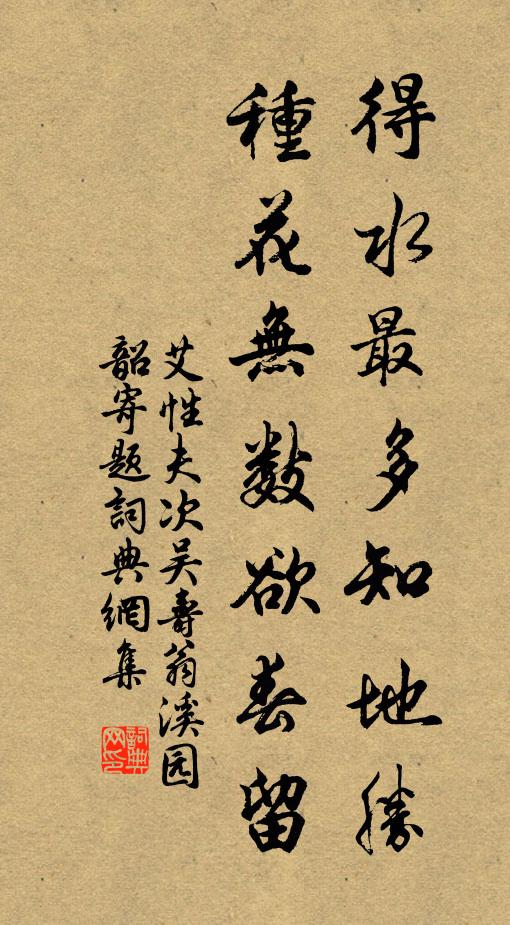 得水最多知地勝
種花無數欲春留
艾性夫次吴壽翁溪园
韶寄题詞典網集
詞典
网印